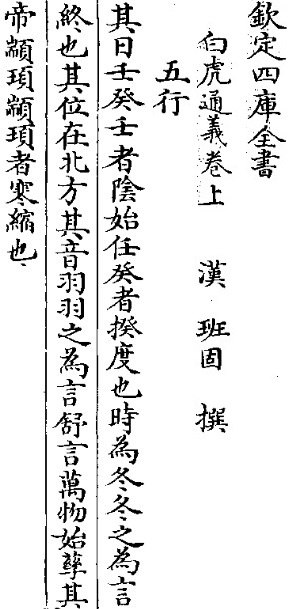 欽定四庫全書
白虎通義卷上　漢　班固　撰
五行
其日壬癸壬者陰始任癸者揆度也時為冬冬之為言
終也其位在北方其音羽羽之為言舒言萬物始孳其
帝顓頊顓頊者寒縮也